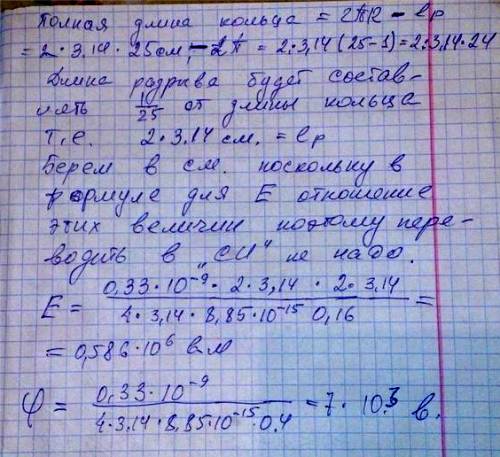 Полная длина кольца = 2πR - lp
= 2·3,14·25см, - 2π = 2·3,14(25-1)=2·3,14·24
Длина разрыва будет состав-
лять 1/25 от длины кольца
т.е. 2·3.14 см. = lp
Берем в см. поскольку в
формуле для E отношение
этих величин поэтому пере-
водить в „СИ" не надо.
E = 0,33·10⁻⁹·2·3,14·2·3,14 / 4·3,14·8,85·10⁻¹⁵ 0,16 =
= 0,586·10⁶ в·м
φ = 0,33·10⁻⁹ / 4·3.14·8,85·10⁻¹⁵·0.4 = 7·10³ в.